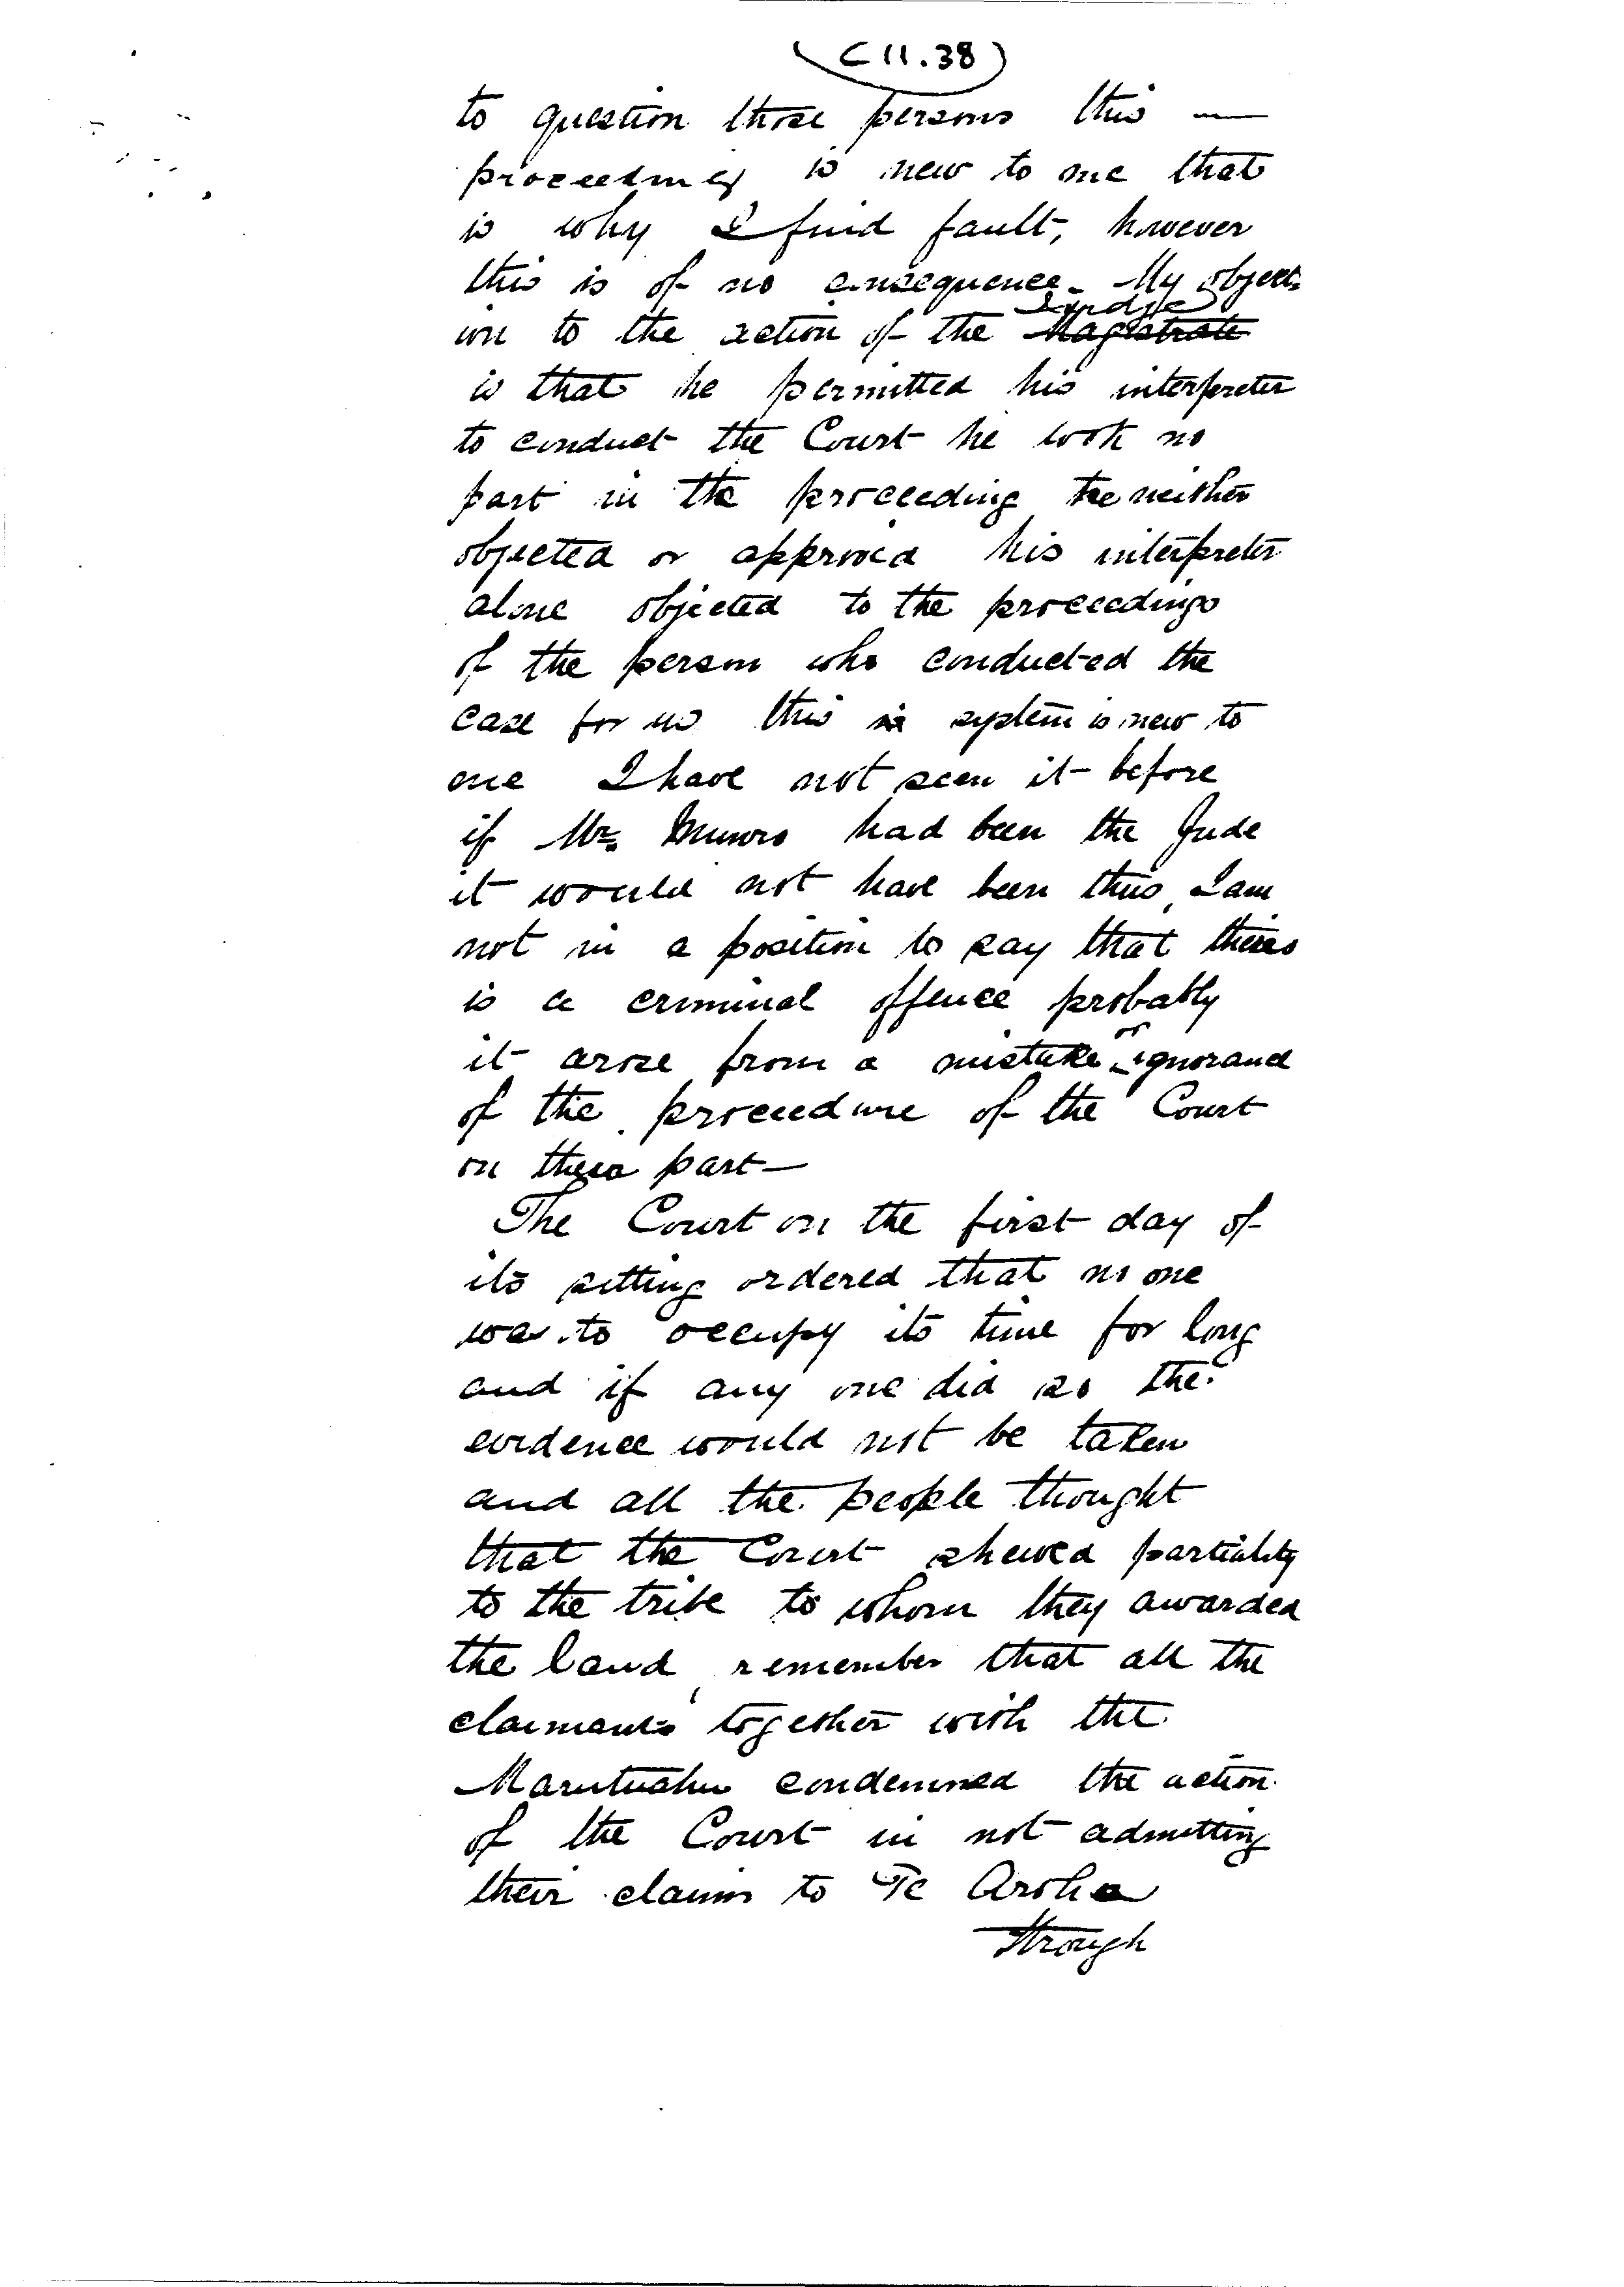 (C 11.38)
to question those persons this —
proceeding is new to me that
is why I find fault, however
this is of no consequence - My object-
Judge
ion to the action of the Magistrate
is that he permitted his interpreter
to conduct the Court he took no
part in the proceeding he neither
objected or approved his interpreter
alone objected to the proceedings
of the person who conducted the
case for us this is system is new to
me I have not seen it before
if Mr. Munro had been the Jude
it would not have been thus, I am
not in a position to say that theirs
is a criminal offence probably
or
it arose from a mistake ignorance
of the proceedure of the Court
on their part —
The Court on the first day of
its sitting ordered that no one
was to occupy its time for long
and if any one did so the
evidence would not be taken
and all the people thought
that the Court shewed partiality
to the tribe to whom they awarded
the land, remember that all the
claimants together with the
Marutuahu condemned the action
of the Court in not admitting
their claims to Te Aroha
through